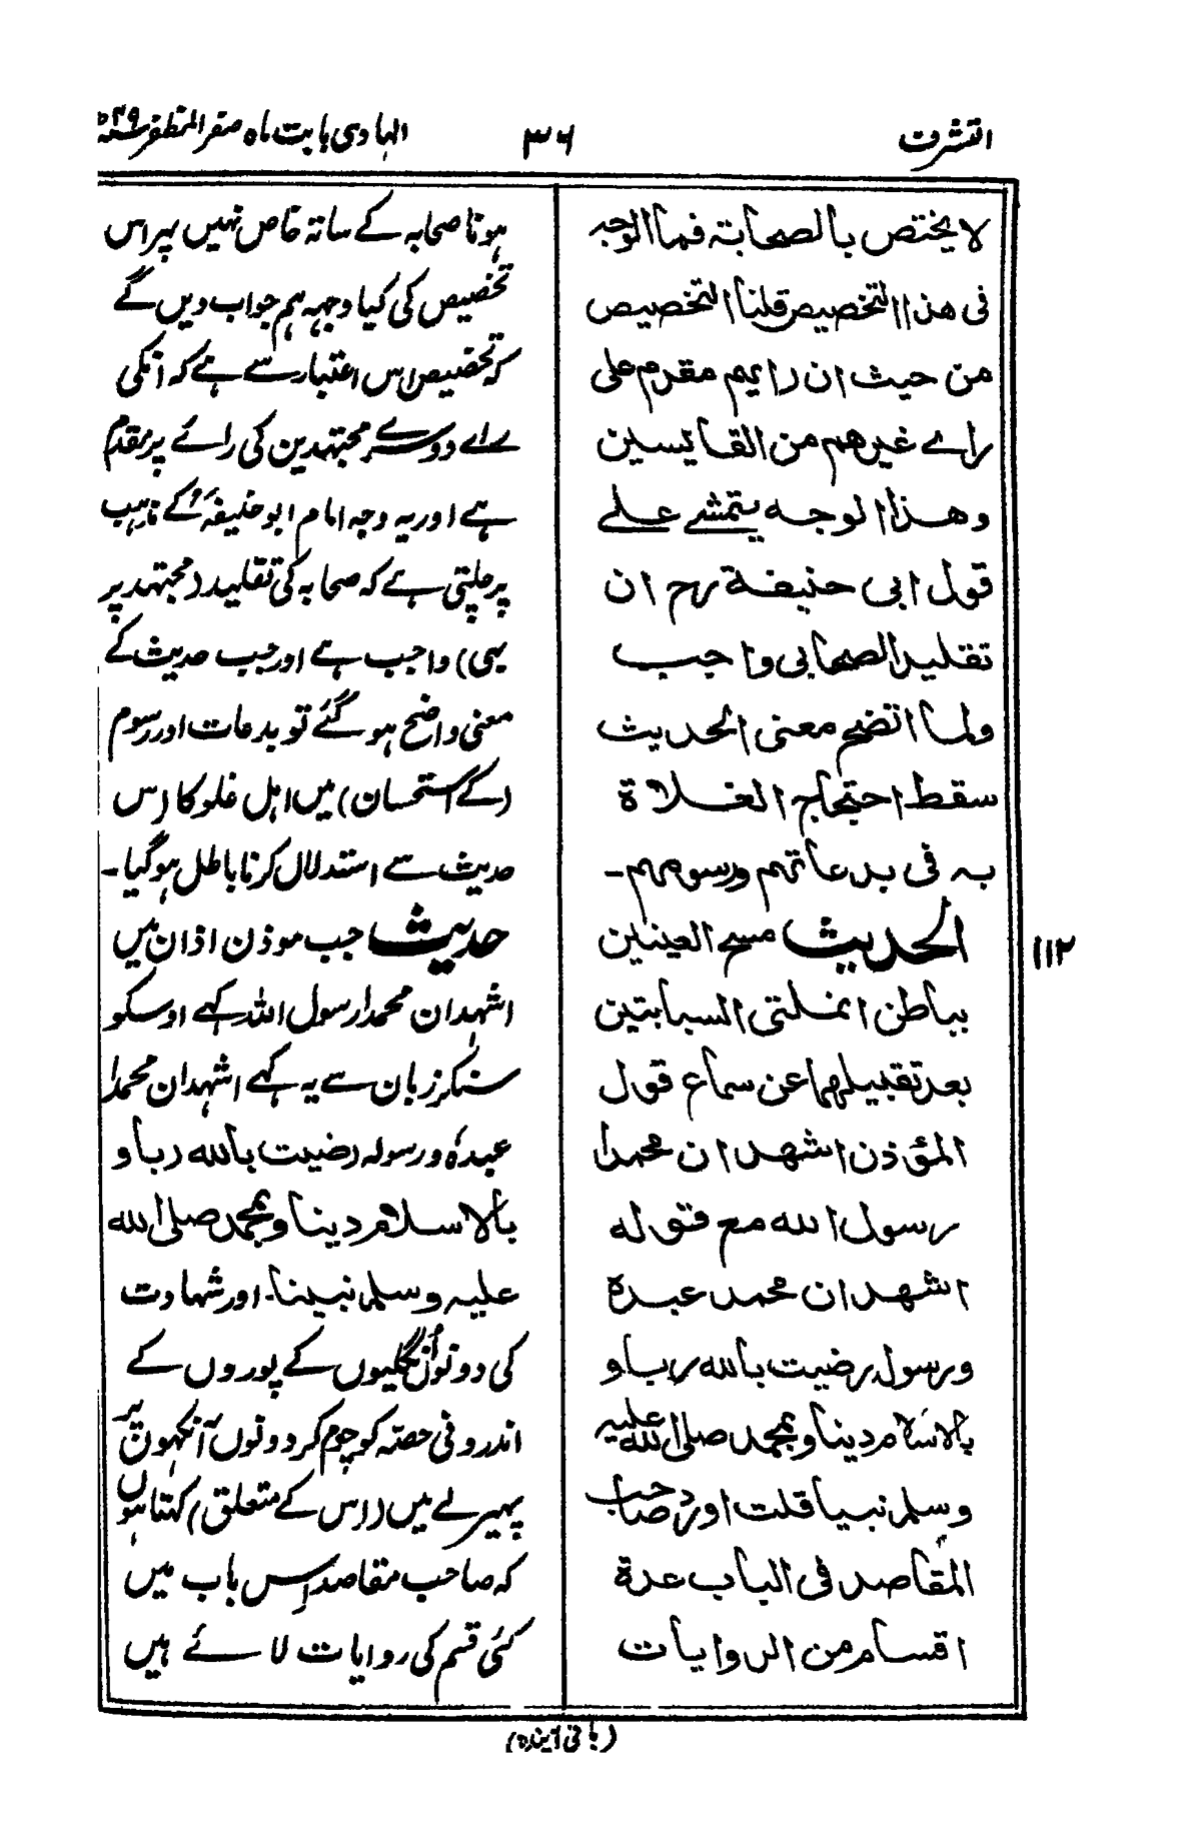 التشرف
۳۶
الہادی بابت ماہ صفر المظفر ۴۹ھ
لا يختص بالصحابة فما الوجه
فی هذا التخصيص قلنا التخصيص
من حيث ان رايهم مقدم على
رائے غيرهم من القائسين
وهذا الوجه يتمشے علے
قول ابی حنيفة رح ان
تقليد الصحابی واجب
ولما اتضح معنى الحديث
سقط احتجاج الغلاة
به فی بدعاتهم ورسومهم۔
الحديث مسح العينين
بباطن انملتی السبابتين
بعد تقبيلهما عن سماع قول
المؤذن اشهد ان محمدا
رسول الله مع قوله
اشهد ان محمد عبده
ورسوله رضيت بالله ربا و
بالاسلام دينا وبمحمد صلی الله عليه
وسلم نبيا قلت اورد صاحب
المقاصد فی الباب عدة
اقسام من الروايات
ہونا صحابہ کے ساتہ خاص نہیں پہر اس
تخصیص کی کیا وجہ ہم جواب دیں گے
کہ تخصیص اس اعتبار سے ہے کہ انکی
رائے دوسرے مجتہدین کی رائے پر مقدم
ہے اور یہ وجہ امام ابو حنیفہؒ کے مذہب
پر چلتی ہے کہ صحابہ کی تقلید (مجتہد پر
بہی) واجب ہے اور جب حدیث کے
معنی واضح ہو گئے تو بدعات اور رسوم
(کے استحسان) میں اہل غلو کا اس
حدیث سے استدلال کرنا باطل ہو گیا۔
حدیث جب موذن اذان میں
اشہد ان محمدا رسول اللہ کہے اوسکو
سنکر زبان سے یہ کہے اشہد ان محمدا
عبدہ ورسولہ رضیت باللہ ربا و
بالاسلام دینا وبمحمد صلی اللہ
علیہ وسلم نبینا۔ اور شہادت
کی دونوں انگلیوں کے پوروں کے
اندرونی حصہ کو چوم کر دونوں آنکہوں پر
پہیر لے میں (اس کے متعلق) کہتا ہوں
کہ صاحب مقاصد اس باب میں
کئی قسم کی روایات لائے ہیں
۱۱۲
(باقی آیندہ)